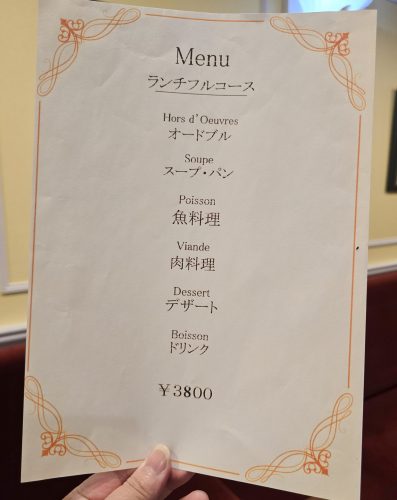 Menu
ランチフルコース
Hors d'Oeuvres
オードブル
Soupe
スープ・パン
Poisson
魚料理
Viande
肉料理
Dessert
デザート
Boisson
ドリンク
￥3800